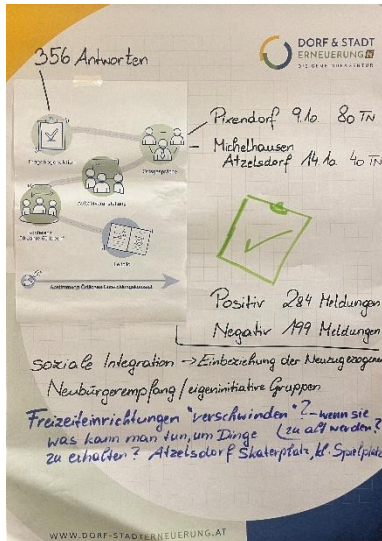 356 Antworten
DORF & STADT
ERNEUERUNG
DIE GEMEINDEAGENTUR
Pixendorf 9.10. 80 TN
Michelhausen
Atzelsdorf 14.10. 40 TN
Positiv 284 Meldungen
Negativ 199 Meldungen
soziale Integration → Einbeziehung der Neuzugezogenen
Neubürgerempfang / eigeninitiative Gruppen
Freizeiteinrichtungen "verschwinden"? – wenn sie
was kann man tun, um Dinge (zu alt werden?
zu erhalten? Atzelsdorf Skaterplatz, kl. Spielplatz
WWW.DORF-STADTERNEUERUNG.AT